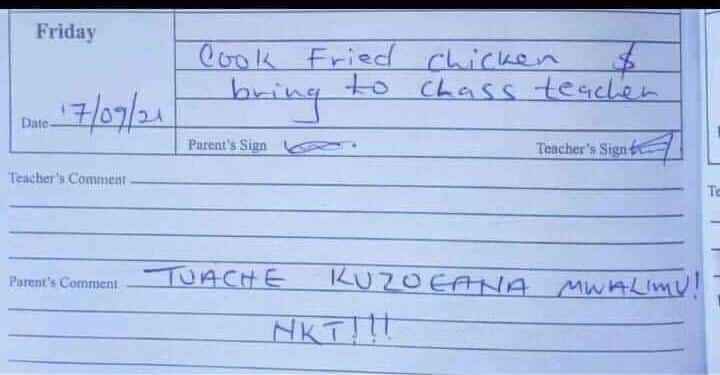 Friday
Cook Fried chicken $
bring to chass teacher
Date 17/09/21
Parent's Sign
Teacher's Sign
Teacher's Comment
Parent's Comment TUACHE KUZOEANA MWALIMU!
NKT!!!